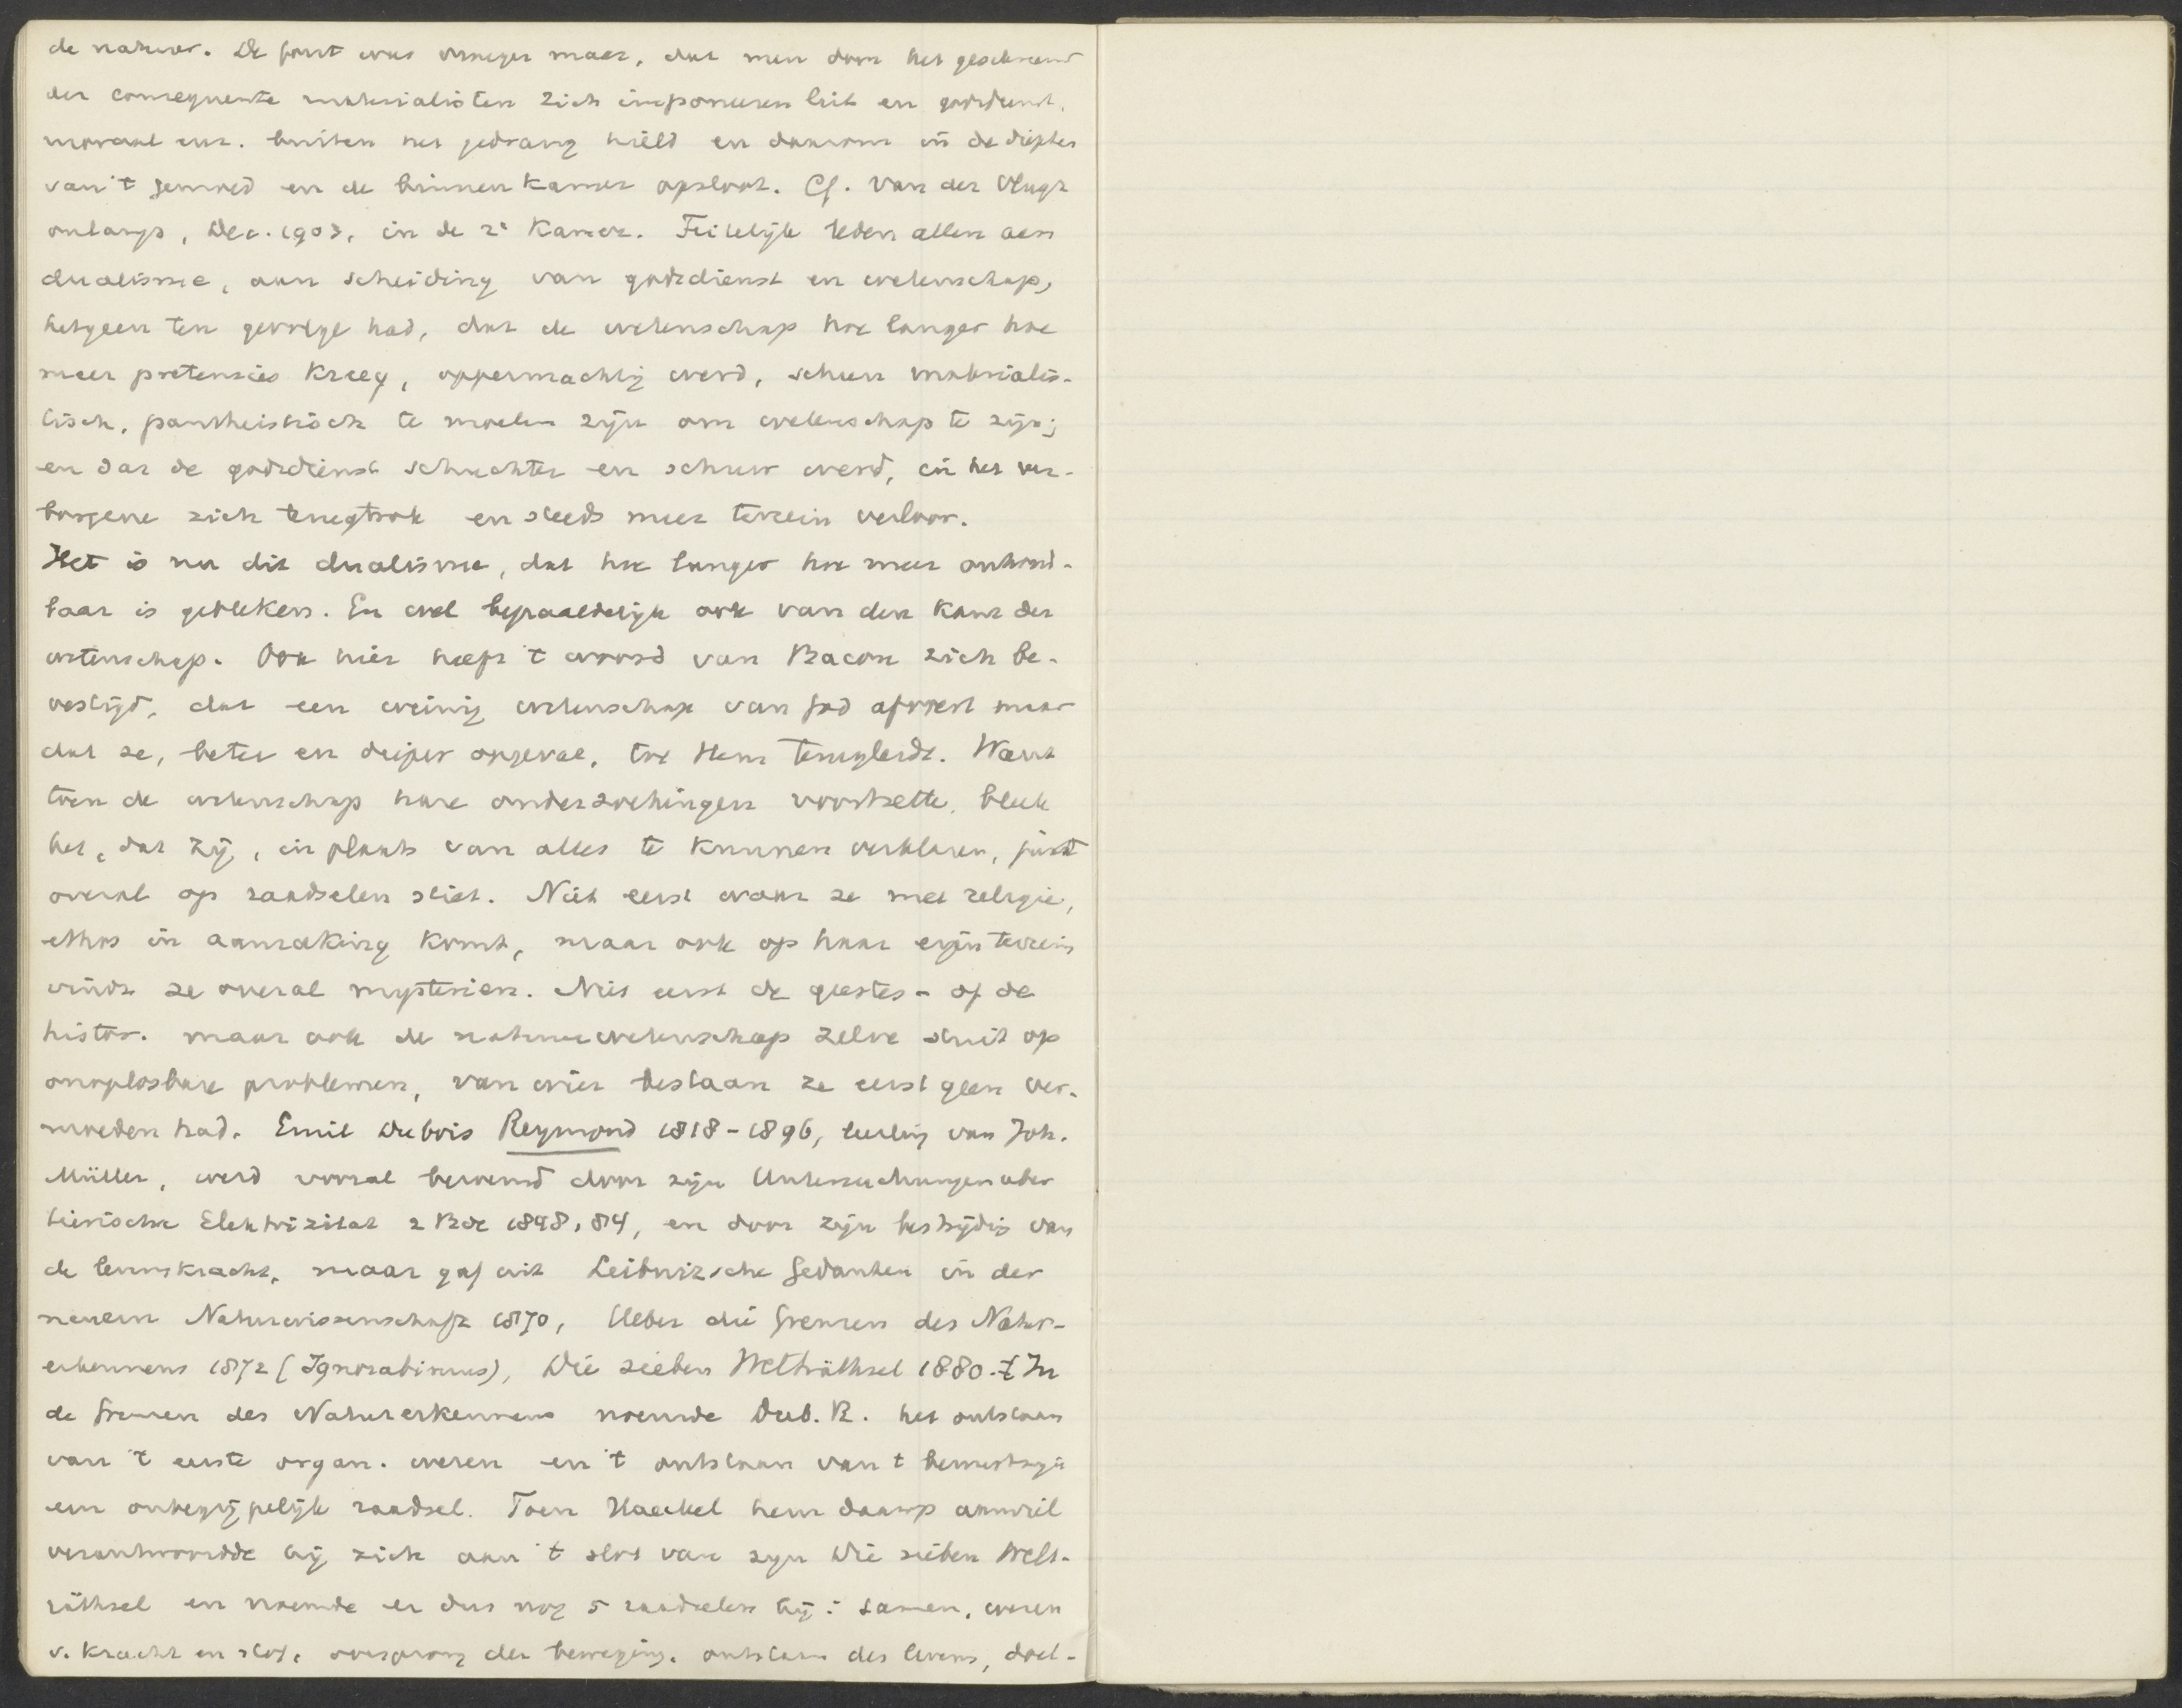 de natuur. De fout was vroeger maar, dat men door het geschreeuw
der consequente materialisten zich imponeeren liet en godsdienst,
moraal enz. buiten het gedrang hield en daarom in de diepten
van 't gemoed en de binnenkamer opsloot. Cf. Van der Vlugt
onlangs, Dec. 1903, in de 2e Kamer. Feitelijk leden allen aan
dualisme, aan scheiding van godsdienst en wetenschap,
hetgeen ten gevolge had, dat de wetenschap hoe langer hoe
meer pretensies kreeg, oppermachtig werd, scheen materialis-
tisch, pantheistisch te moeten zijn om wetenschap te zijn;
en dat de godsdienst schuchter en schuw werd, in het ver-
borgene zich terugtrok en steeds meer terrein verloor.
Het is nu dit dualisme, dat hoe langer hoe meer onhoud-
baar is gebleken. En wel bepaaldelijk ook van den kant der
wetenschap. Ook hier heeft 't woord van Bacon zich be-
vestigd, dat een weinig wetenschap van God afvoert maar
dat ze, beter en dieper opgevat, tot Hem terugleidt. Want
toen de wetenschap hare onderzoekingen voortzette, bleek
het, dat zij, in plaats van alles te kunnen verklaren, juist
overal op raadselen stiet. Niet eerst waar ze met religie,
ethos in aanraking komt, maar ook op haar eigen terrein
vindt ze overal mysterien. Niet eerst de geestes- of de
histor. maar ook de natuurwetenschap zelve stuit op
onoplosbare problemen, van wier bestaan ze eerst geen ver-
moeden had. Emil Dubois Reymond 1818-1896, leerling van Joh.
Müller, werd vooral beroemd door zijn Untersuchungen uber
tierische Elektrizitat 2 Bde 1848, 84, en door zijn bestrijding van
de levenskracht, maar gaf uit Leibnizsche Gedanken in der
neuern Naturwissenschaft 1870, Ueber die Grenzen des Natur-
erkennens 1872 (Ignorabimus), Die sieben Welträthsel 1880. In
de Grenzen des Naturerkennens noemde Dub. R. het ontstaan
van 't eerste organ. wezen en 't ontstaan van t bewustzijn
een onbegrijpelijk raadsel. Toen Haeckel hem daarop aanviel
verantwoordde hij zich aan 't slot van zijn Die sieben Welt-
räthsel en noemde er dus nog 5 raadselen bij: samen, wezen
v. kracht en stof, oorsprong der beweging, ontstaan des levens, doel-